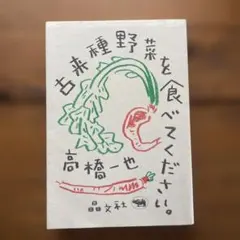 古来種野菜を食べてください。
高橋一也
晶文社